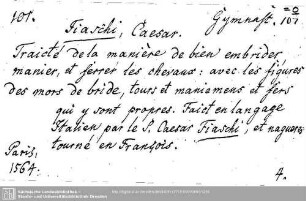 101.
Gymnast. 107
Fiaschi, Caesar.
Traicté de la manière de bien embrider,
manier, et ferrer les chevaux: avec les figures
des mors de bride, tours et maniemens et fers
qui y sont propres. Faict en langage
Italien par le S. Caesar Fiaschi, et nagueres
tourné en François.
Paris,
1564.
4.